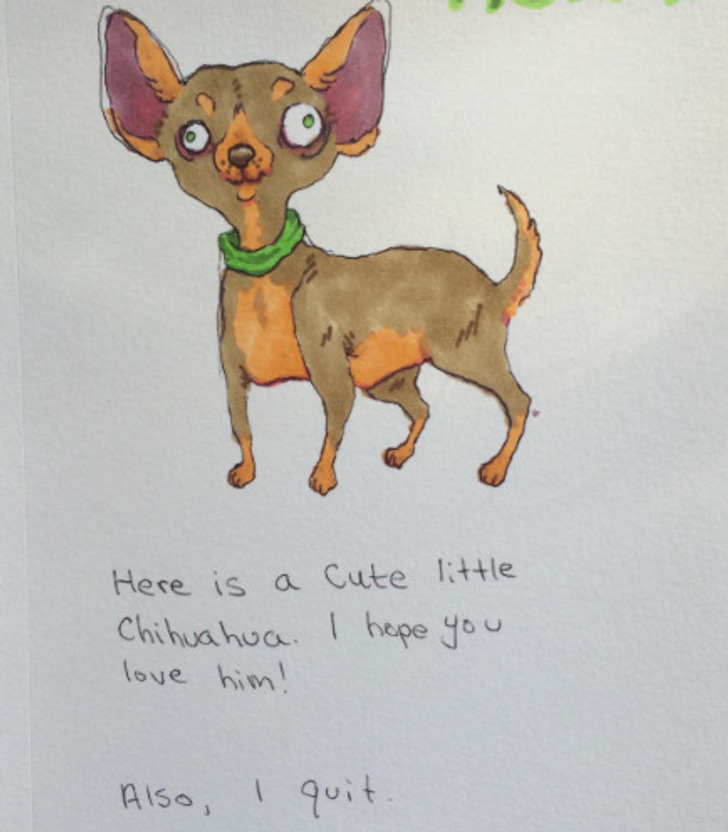 Here is a Cute little
Chihuahua. I hope you
love him!
Also, I quit.